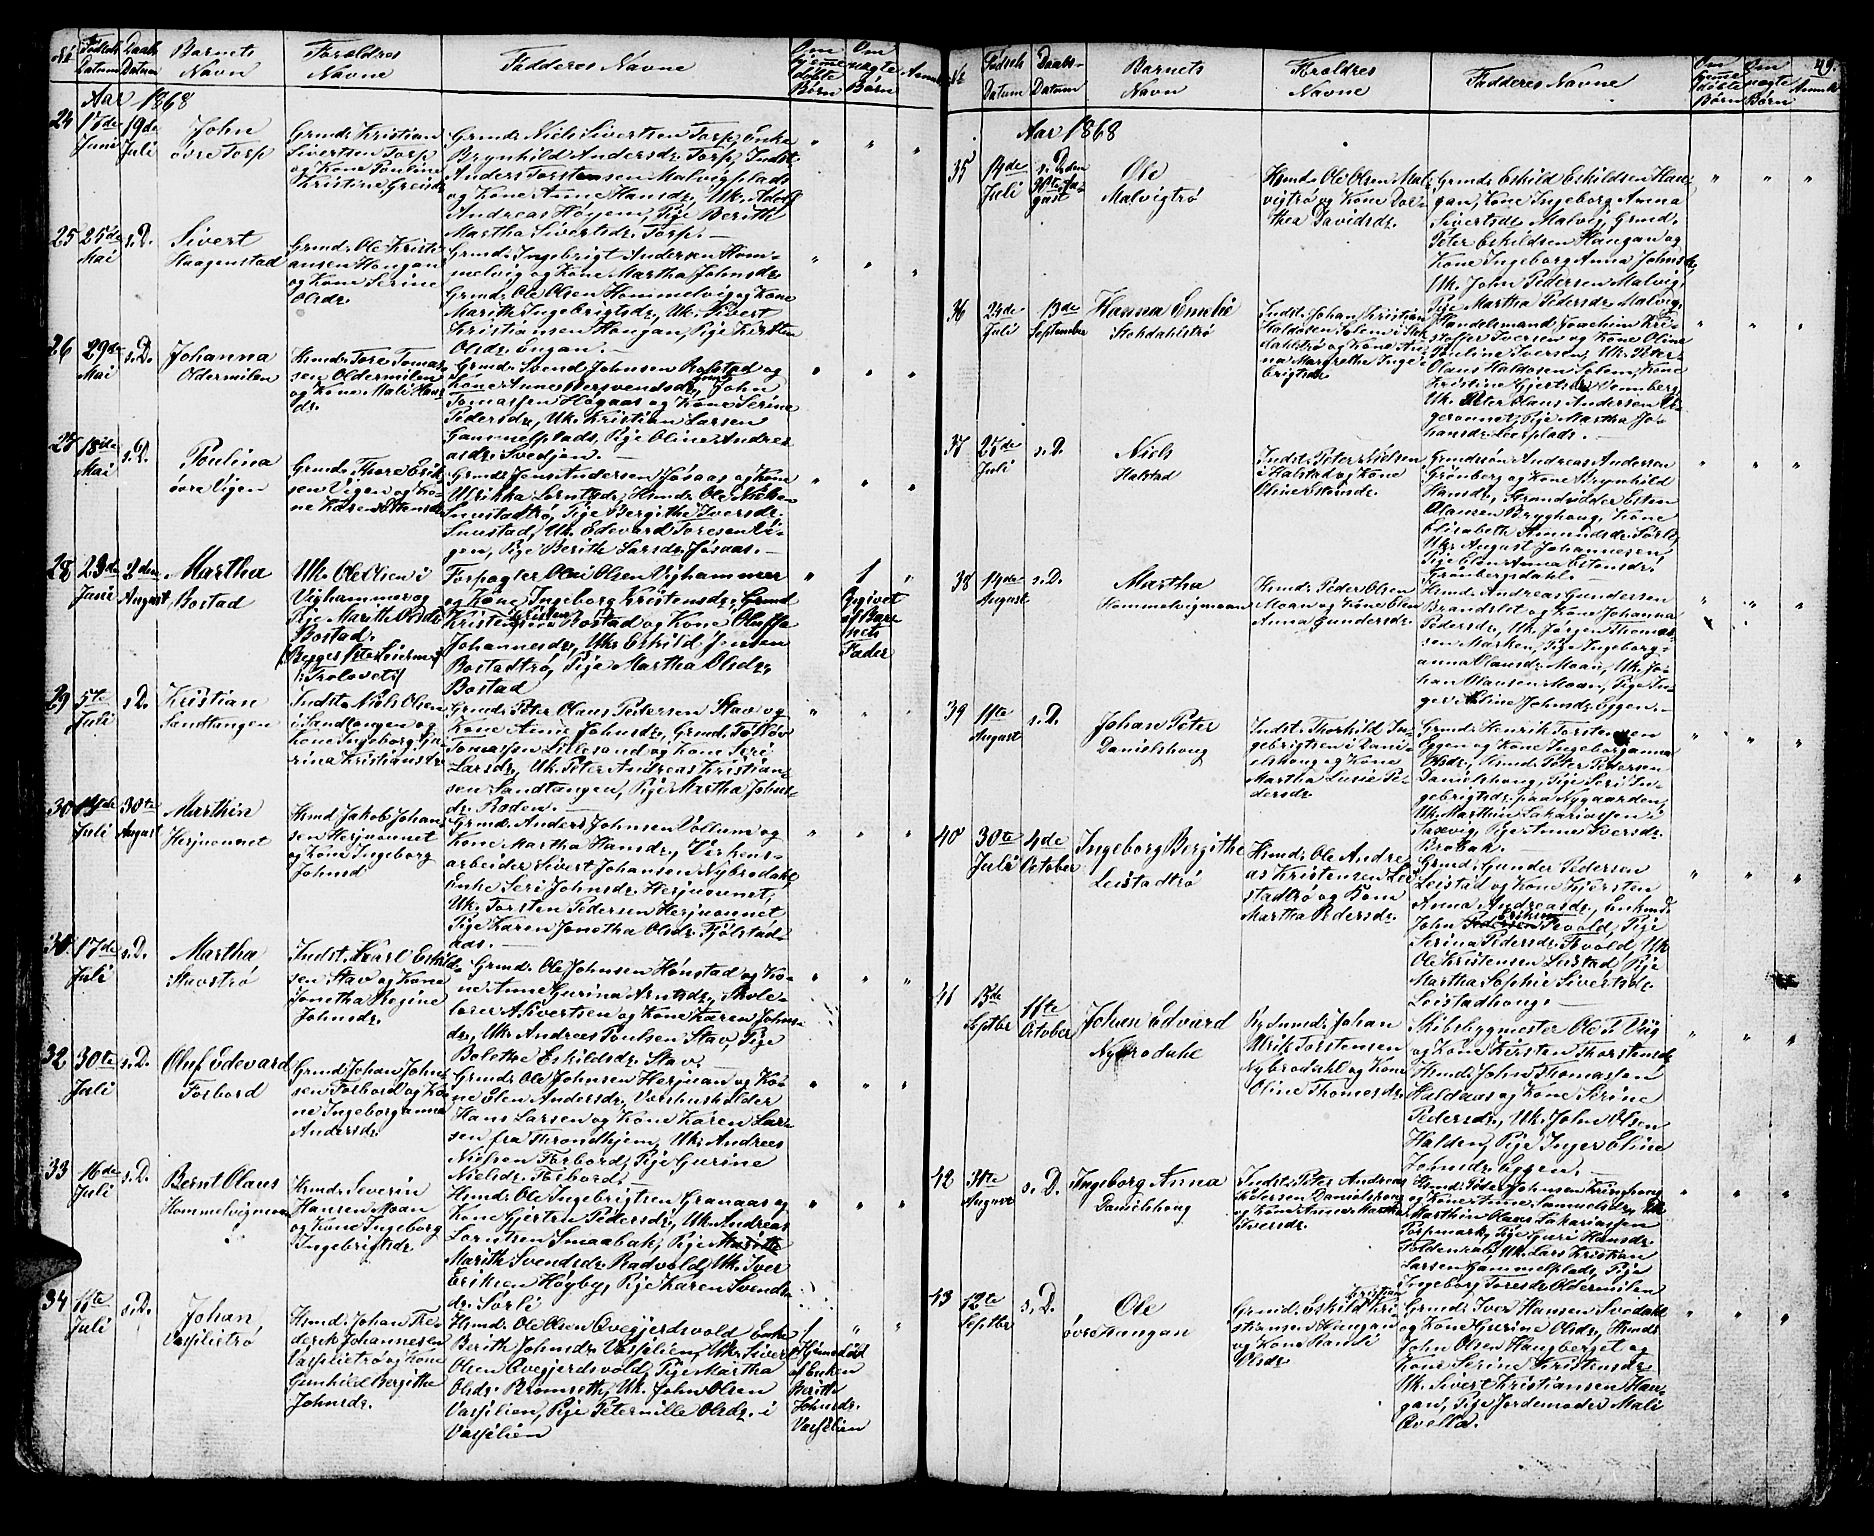 No Fødsels Datum Daabs Datum Barnets Navn Forældres Navne Fadderes Navne Om hjemme døbte Børn Om uægte Børn
Aar 1868
24 17de Juni 19de Juli John øvre Torp
Grmd. Kristian
Sivertsen Torp
og Kone Pouline
Kristine Greisdr.
Grmd. Niels Sivertsen Torp, Enke
Brynhild Andersdr. Torp, Indst.
Anders Torstensen Malvigplads
og Kone Anne Hansdr., Uk. Adolf
Andreas Høyem, Pige Berith
Martha Sivertsdr. Torp.
25 25de Mai s.D. Sivert Haagenstad
Grmd. Ole Kristi-
ansen Haugan
og Kone Serine
Olsdr.
Grmd. Ingebrigt Andersen Hom-
melvig og Kone Martha Johnsdr.
Grmd. Ole Olsen Hommelvig og Kone
Marith Ingebrigtsdr., Uk. Sivert
Kristiansen Haugan, Pige Kirsten
Olsdr. Engan.
26 29de Mai s.D. Johanna Oldermilen
Hmd. Tore Tomas-
sen Oldermilen
og Kone Mali Hans-
dr.
Grmd. Svend Johnsen Rolstad og
Kone Anne Persvendsdr., John
Tomassen Høgaas og Kone Serine
Pedersdr., Uk. Kristian Larsen
Gammelplads, Pige Oline Andre-
asdr. Svedjan.
27 18de Mai s.D. Poulina øvre Vigen
Grmd. Thore Erik-
sen Vigen og Ko-
ne Karen Hansdr.
Grmd. Jens Andersen Jøsaas og Kone
Ulrikka Lorntsdr., Hmd. Ole Nielsen
Snustadtrø, Pige Bergithe Iversdr.
Snustad, Uk. Edevard Toresen Vi-
gen, Pige Berith Larsdr. Jøsaas.
28 23de Juni 2den August Martha Bostad
Uk. Ole Olsen i
Vighammer og
Pige Marith Olsdr.
Bostad.
(Begges 1ste Leiermaal
Trolovet)
Forpagter Ole Olsen Vighammer
og Kone Ingeborg Kristensdr., Grmd.
Kristen Bostad og Kone Oluffa
Johannesdr., Uk. Eskild Jensen
Bostadtrø, Pige Martha Olsdr.
Bostad
1
Opgivet
af Bar-
nets
Fader
29 5te Juli s.D. Kristian Sandtangen
Indst. Niels Olsen
i Sandtangen og
Kone Ingeborg Gu-
rina Kristiansdr.
Grmd. Peter Olaus Pedersen Stav og
Kone Anne Johnsdr., Grmd.
Tomassen Lillesand og Kone Seri
Larsdr., Uk. Peter Andreas Kristian-
sen Sandtangen, Pige Martha Johns-
dr. Roden.
30 14de Juli 30te August Marthin Herjuounet
Hmd. Jakob Johan-
sen Herjuounet
og Kone Ingeborg
Johnsd.
Grmd. Anders Johnsen Vollum og
Kone Martha Hansdr., Verkens-
arbeider Sivert Johansen Nybrodahl,
Enke Seri Johnsdr. Herjuounet,
Uk. Torsten Pedersen Herjuounet
Pige Karen Jonetha Olsdr. Fjølstad-
aas.
17de Juli s.D. Martha Stavstrø
Indst. Karl Eskild-
sen Stav og Kone
Jonetha Regine
Johnsdr.
Grmd. Ole Johnsen Hønstad og Ko-
ne Anne Gurina Arntsdr., Skole-
lærer A. Sivertsen og Kone Karen Johns-
dr., Uk. Andreas Poulsen Stav, Pige
Bolethe Eskildsdr. Stav.
32 30te Juli s.D. Oluf Edevard Forbord
Grmd. Johan John-
sen Forbord og Ko-
ne Ingeborganna
Andersdr.
Grmd. Ole Johnsen Herjuan og Ko-
ne Elen Andersdr.,
Hans Larsen og Kone Karen Lar-
sen fra Throndhjem, Uk. Andreas
Nielsen Forbord, Pige Gurine
Nielsdr. Forbord.
33 16de Juli s.D. Bernt Olaus Hommelvigmoen
Hmd. Severin
Hansen Moan
og Kone Ingeborg
Ingebrigtsdr.
Hmd. Ole Ingebrigtsen Grønaas og
Kone Gjertru Pedersdr., Uk. Andreas
Lorntsen Smaabak, Pige
Marith Svendsdr. Rødvold, Uk. Iver
Eriksen Høyby, Pige Karen Svends-
dr. Sørli
34 11te Juli s.D. Johan, Vasslietrø
Hmd. Johan Fre-
derik Johannesen
Vasslietrø og Kone
Gunhild Bergithe
Johnsdr.
Hmd. Ole Olsen Qvegjerdsvold, Enke
Berith Johnsdr. Vasslien, Uk. Siver
Olsen Qvegjerdsvold, Pige Martha
Olsdr. Bromseth, Uk. John Olsen
Vasslien, Pige Peternille Olsdr. i
Vasslien
1
Hjemedøbt
af Enken
Berith
Johnsdr.
Vasslien
49.
No Fødsels Datum Daabs- Datum Barnets Navn Forældres Navne Fadderes Navne Om hjemme døbte Børn Om uægte Børn Anmærk
Aar 1868
35 14de Juli s. Dden 30te August Ole Malvigtrø
Hmd. Ole Olsen Mal-
vigtrø og Kone Dor-
thea Davidsdr.
Grmd. Eskild Eskildsen Hau-
gan, Kone Ingeborg Anna
Sivertsdr. Malvig, Grmd.
Peter Eskildsen Haugan og
Kone Ingeborg Anna Johnsdr.,
Uk. John Pedersen Malvig,
Pige Martha Pedersdr. Malvig.
36 24de Juli 13de September Hanna Emelie Stokdahlstrø
Indst. Johan Kristian
Haldosen Solem i Stok-
dahlstrø og Kone An-
na Margrethe Inge-
brigtsdr.
Handelsmand Joachim Kri-
stoffer Iversen og Kone
Pouline Iversen, Uk. Peter
Olaus Haldosen Solem, Kone
Kristine Gjertsdr. Vennberg
Uk. Peter Olaus Andersen
Pige Martha Jo-
hansdr. Leerplads.
37 25de Juli s.D. Niels Halstad
Indst. Peter Nielsen
i Halstad og Kone
Oline Hansdr.
Grmdsøn Andreas Andersen
Grønberg og Kone Brynhild
Hansdr., Grmdsøn Peder Esten
Olausen Bryghoug, Kone
Elisabeth Amundsdr. Sørli,
Uk. August Johannesen,
Pige Elen Anna Estensdr.
Grønbergsdahl.
38 14de August s.D. Martha Hommelvigmoan
Hmd. Peder Olsen
Moan og Kone Elen
Anna Gundersdr.
Hmd. Andreas Gundersen
Brandslet og Kone Johanna
Pedersdr., Uk. Jørgen Thomas-
sen Marken, Pige Ingeborg-
anna Olausdr. Moan, Uk. Jo-
han Olausen Moan, Pige In-
ger Eline Johnsdr. Eggen.
39 11te August s.D. Johan Peter Danielshoug
Indst. Thorkild In-
gebrigtsen i Dani-
elshoug og Kone
Martha Lusie Pe-
dersdr.
Grmd. Henrik Torstensen
Eggen og Kone Ingeborganna
Olsdr., Hmd. Peter Petersen
Danielshoug, Pige Seri In-
gebrigtsdr. paa Nygaarden,
Uk. Marthin Sakariassen i
Saxvig, Pige Anne Iversdr.
Brobak.
40 30te Juli 4de October Ingeborg Bergithe Leistadtrø
Hmd. Ole Andre-
as Kristensen Lei-
stadtrø og Kone
Martha Pedersdr.
Grmd. Gunder Pedersen
Leistad og Kone Kjersten
Anna Andreasdr., Enkemd.
John Eriksen Tevold, Pige
Serina Pedersdr. Tevold, Uk.
Ole Kristensen Leistad, Pige
Martha Sophie Sivertsdr.
Leistadhoug.
41 13de Septbr 11te October Johan Edvard Nybrodahl
Bygsmd. Johan
Ulrik Torstensen
Nybrodahl og Kone
Oline Thomesdr.
Skibsbygmester Ole T. Viig
og Kone Kirsten Thorstensdr.
Hmd. John Thomassen
Haldaas og Kone Serine
Pedersdr., Uk. John Olsen
Halden, Pige Inger Eline
Johnsdr. Eggen.
42 31te August s.D. Ingeborg Anna Danielshoug
Indst. Peter Andreas
Petersen Danielshoug
og Kone Anne Martha
Iversdr.
Hmd. Peder Johnsen Kringhoug
og Kone Anne Samuelsdr., Uk.
Marthin Olaus Sakariassen
Torpmark, Pige Guri Hansdr.
Uk. Lars Kristian
Larsen Gammelplads, Pige
Ingeborg Toresdr. Oldermilen
43 12te Septbr s.D. Ole øvre Haugan
Grmd. Eskild Kri-
stiansen Haugan
og Kone Randi
Olsdr.
Grmd. Iver Hansen Svedahl
og Kone Gurine Olsdr., Hmd.
John Olsen Haugberget og
Kone Serine Kristensdr.
Uk. Sivert Kristiansen Hau-
gan, Pige Jordemoder Mali
Qvello.